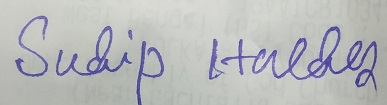 Sudip Halder